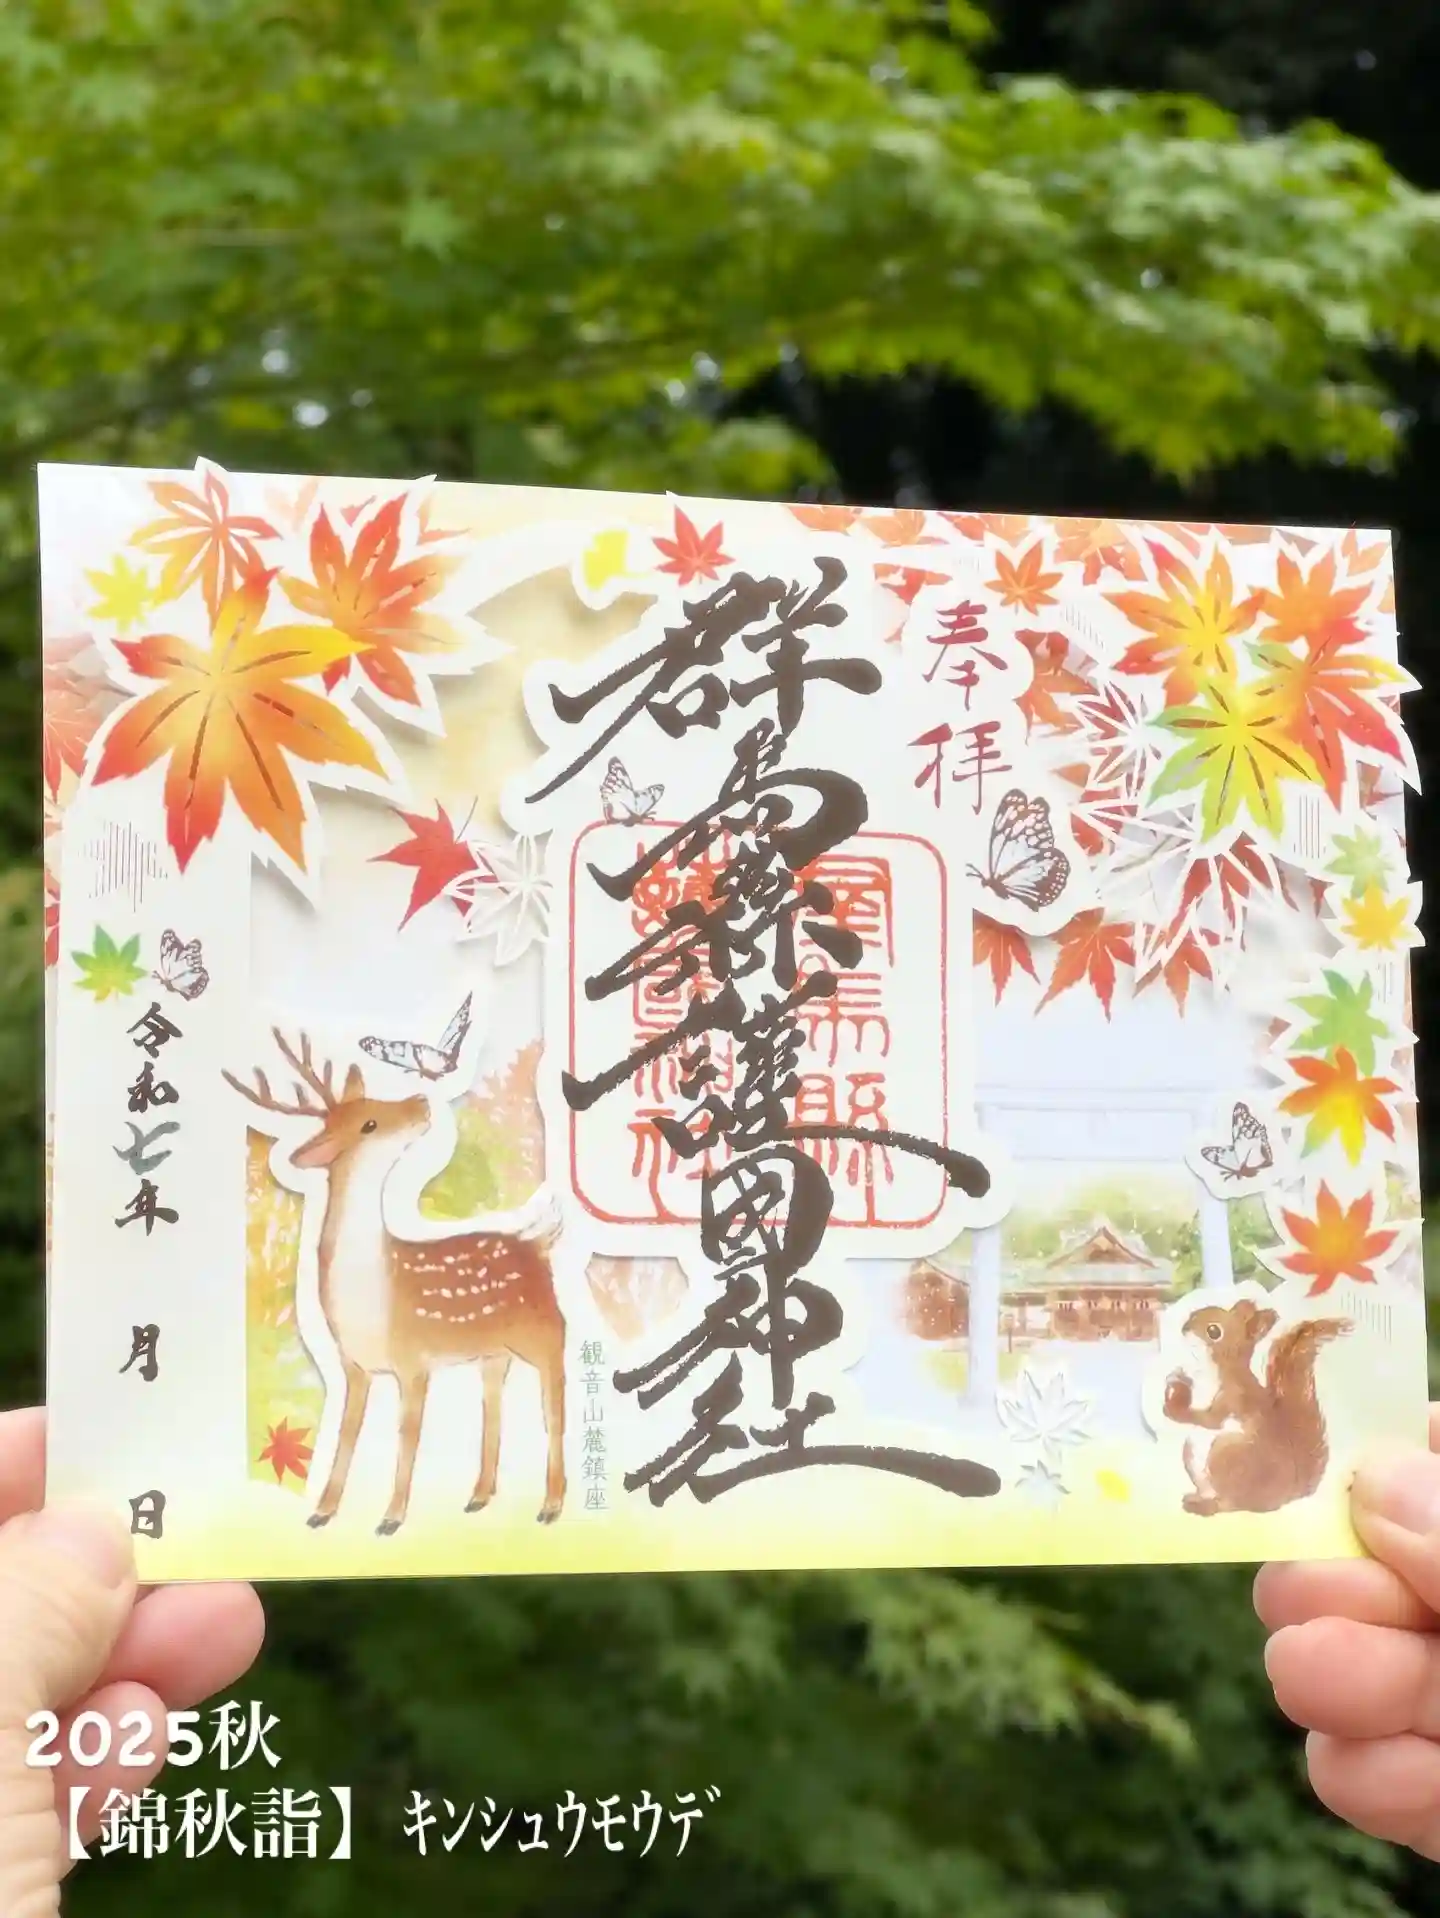 奉拝
群馬縣護國神社
群馬縣
護國神社
観音山麓鎮座
令和七年 月 日
2025秋
【錦秋詣】 キンシュウモウデ